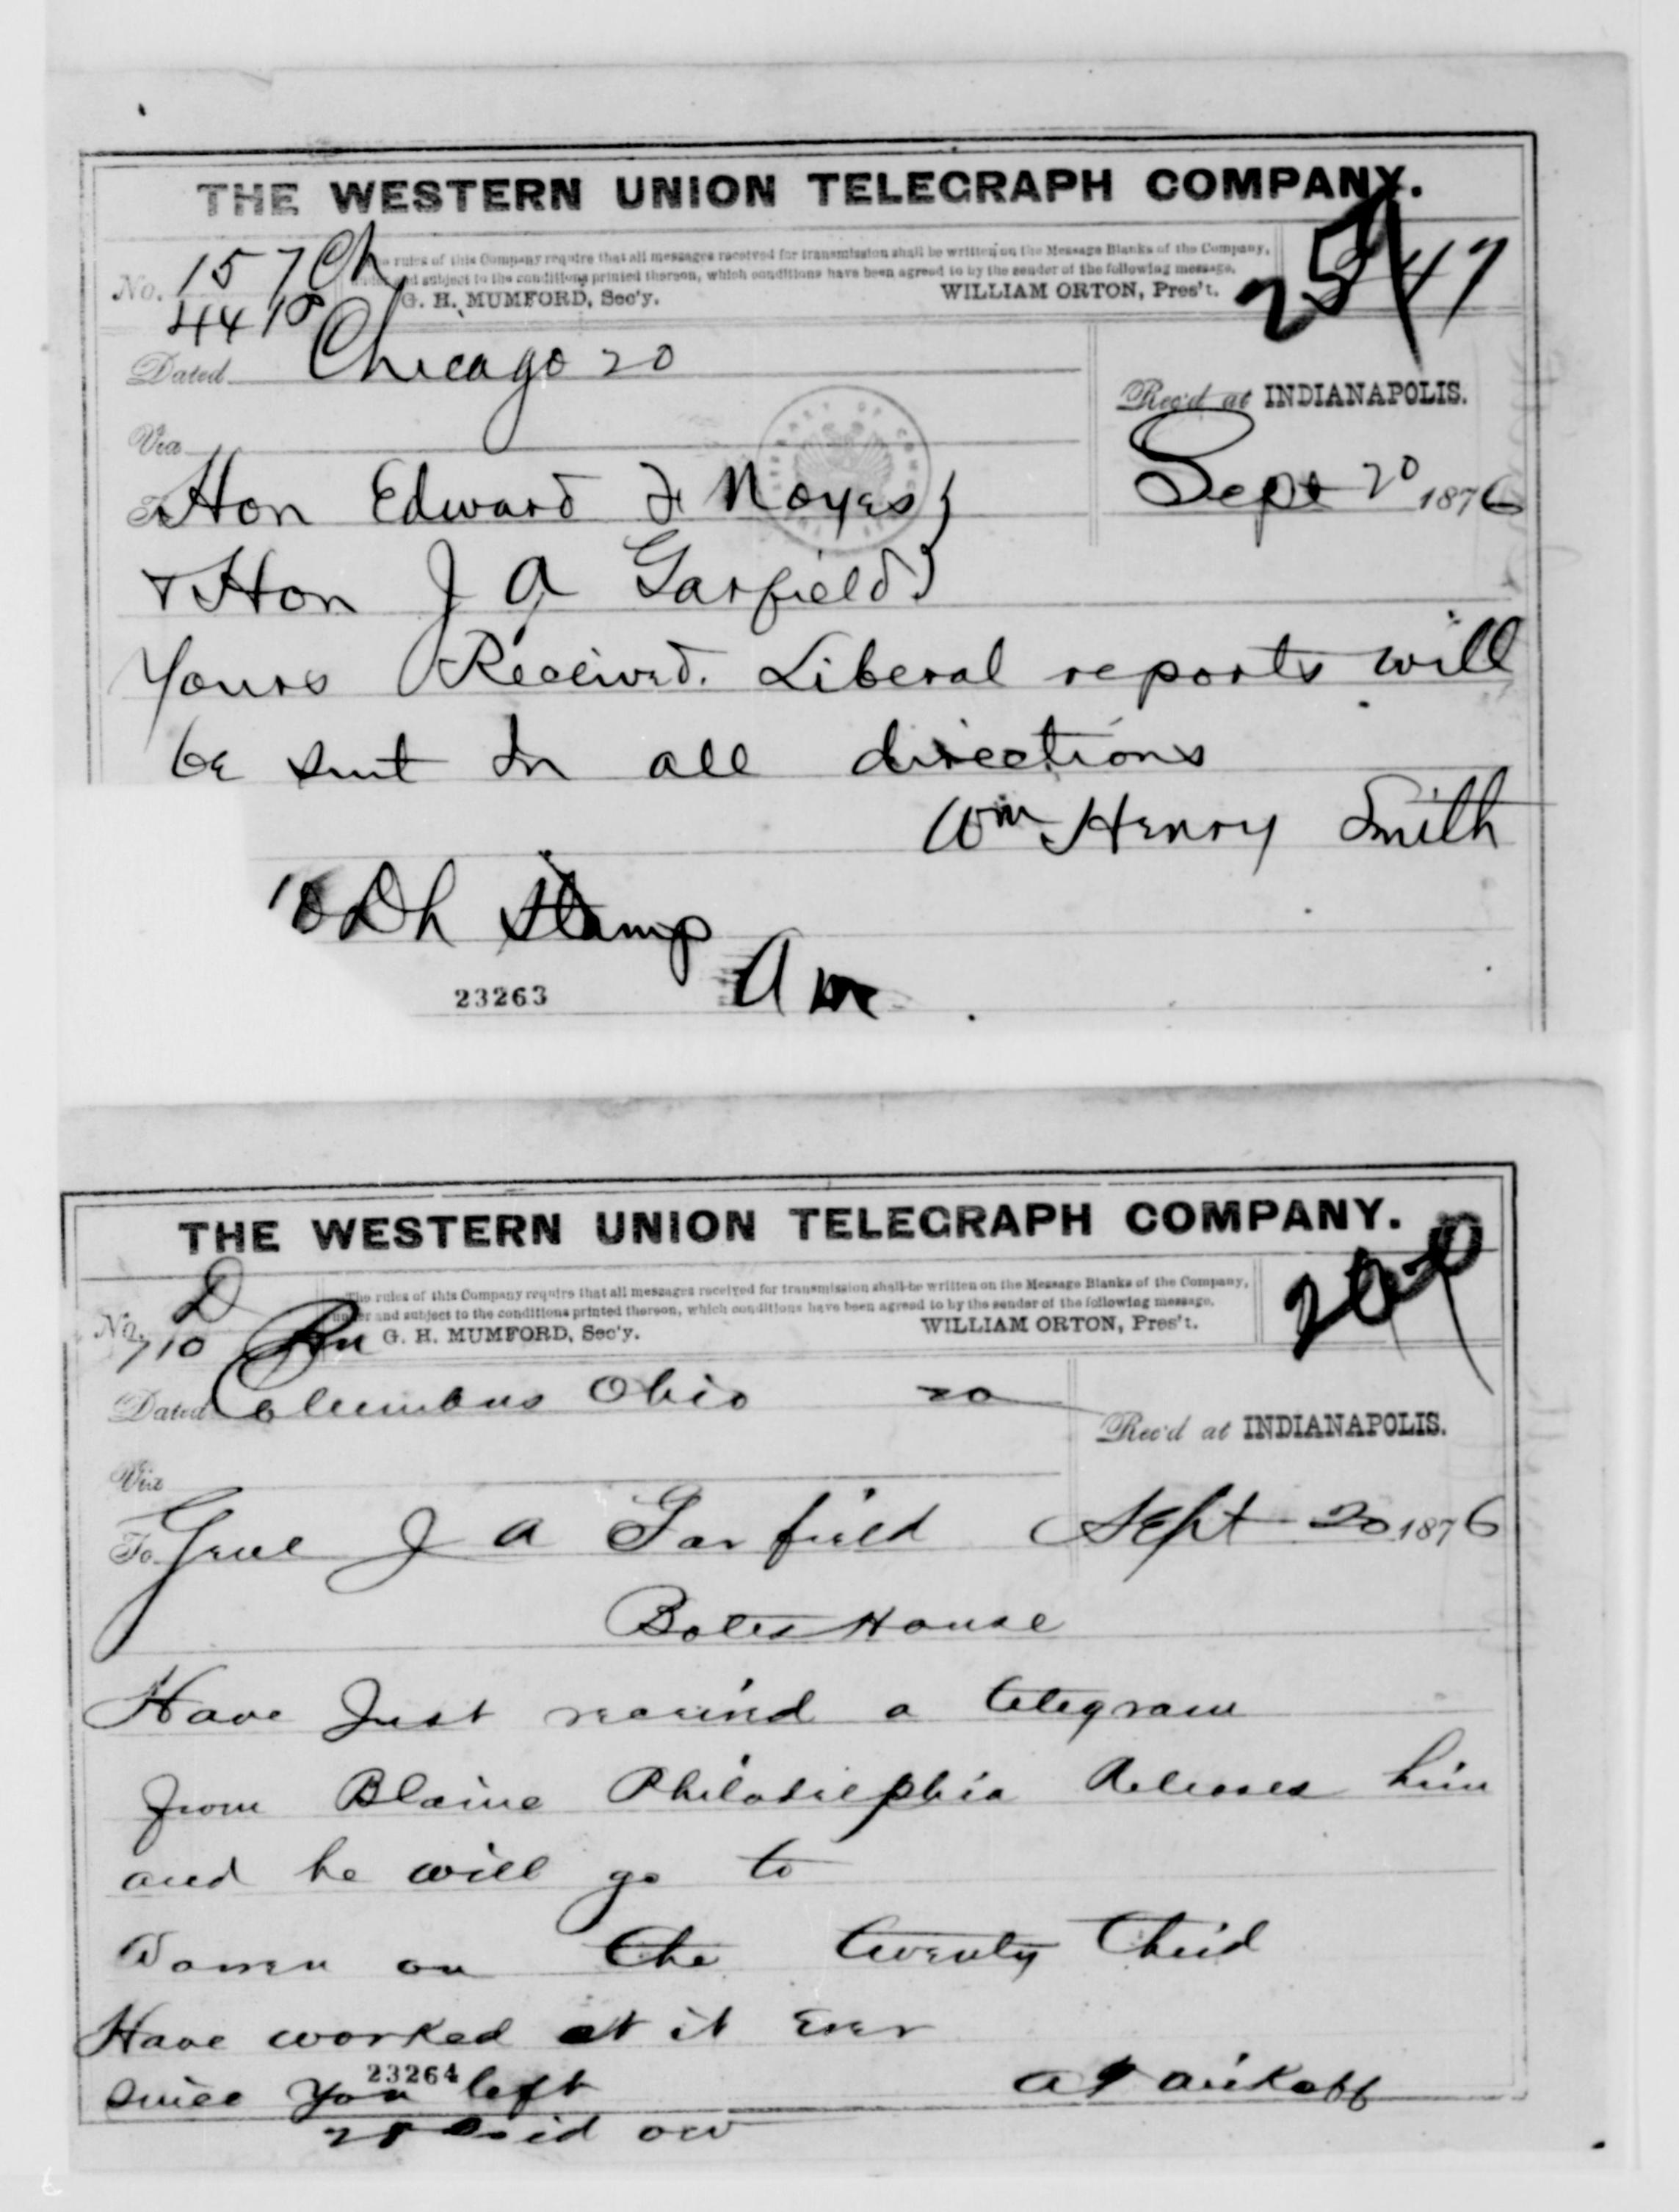 THE WESTERN UNION TELEGRAPH COMPANY.
The rules of this Company require that all messages received for transmission shall be written on the Message Blanks of the Company,
under and subject to the conditions printed thereon, which conditions have been agreed to by the sender of the following message.
No. 157 Ch
G. H. MUMFORD, Sec'y. WILLIAM ORTON, Pres't.
25 47
Dated Chicago 20
Rec'd at INDIANAPOLIS.
Via
To Hon Edward F Noyes }
Sept 20 1876
+ Hon J A Garfield }
Yours Received. Liberal reports will
be sent In all directions
Wm Henry Smith
Dh Stamp
Am
23263
THE WESTERN UNION TELEGRAPH COMPANY.
The rules of this Company require that all messages received for transmission shall be written on the Message Blanks of the Company,
under and subject to the conditions printed thereon, which conditions have been agreed to by the sender of the following message.
No. D
710
G. H. MUMFORD, Sec'y. WILLIAM ORTON, Pres't.
Dated Columbus Ohio 20
Rec'd at INDIANAPOLIS.
Via
To Genl J A Garfield Sept 20 1876
Bates House
Have Just received a telegram
from Blaine Philadelphia Releases him
and he will go to
Warren on the twenty third
Have worked at it Ever
since you left
23264
28 Paid